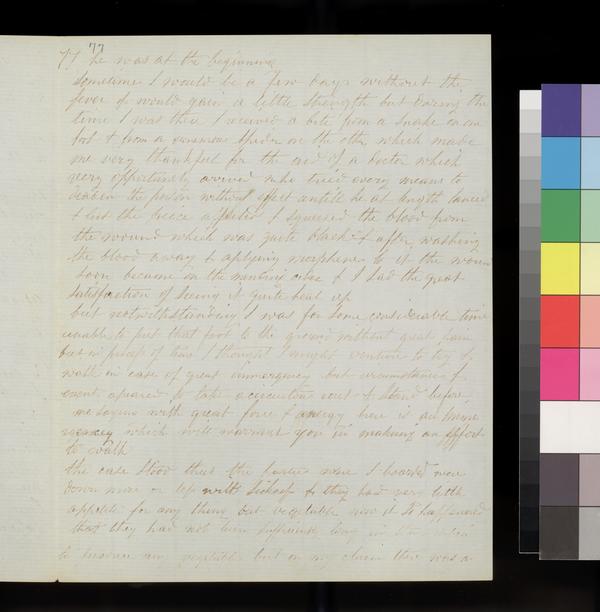 77
77 he was at the beginning
sometime I would be a few days without the
fever & would gain a little strength but during the
time I was there I received a bite from a snake on one
foot & from a venomous spider on the other which made
me very thankful for the aid of a doctor which
very opportunely arrived who tried every means to
the poison without effect untill he at length lanced
& cut the piece & squeesed the blood from
the wound which was quite black & after washing
the blood away & applying morphine to it the wound
soon became on the mending & I had the great
satisfaction of seeing it quite heal up
but notwithstanding I was for some considerable time
unable to put that foot to the ground without great pain
but in process of time I thought I might venture to try to
walk in case of great immergency but circumstances &
event apeared to take a circuitous rout & stand before
me saying with great force & energy here is an immer
which will warrant you in making an effort
to walk
the case stood thus the where I boarded were
down more or less with sickness & they had very little
appetite for any thing but vegetable now it so happened
that they had not been sufficiently long in
to produce any vegetable but on my claim there was a